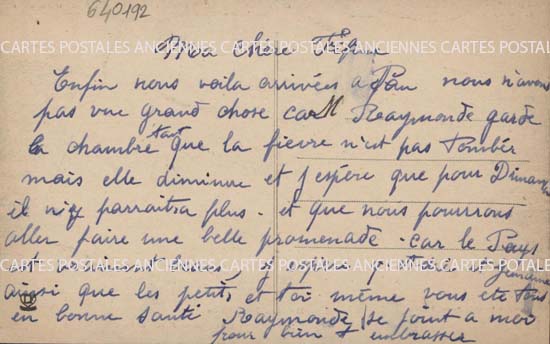 640192
Ma chère
CARTES POSTALES ANCIENNES CARTES POSTALES ANCIENNES CARTES POSTALES
Enfin nous voila arrivées a Pau nous n'avons
pas vue grand chose car M Raymonde garde
la chambre tant que la fievre n'est pas tombér
mais elle diminue et j'espère que pour Dimanche
il n'y parraitra plus. et que nous pourrons
aller faire une belle promenade. car le Pays
est vraiment beau. j'espère
ainsi que les petits et toi même vous ete tous
en bonne santé Raymonde se joint a moi
pour bien t embrasser